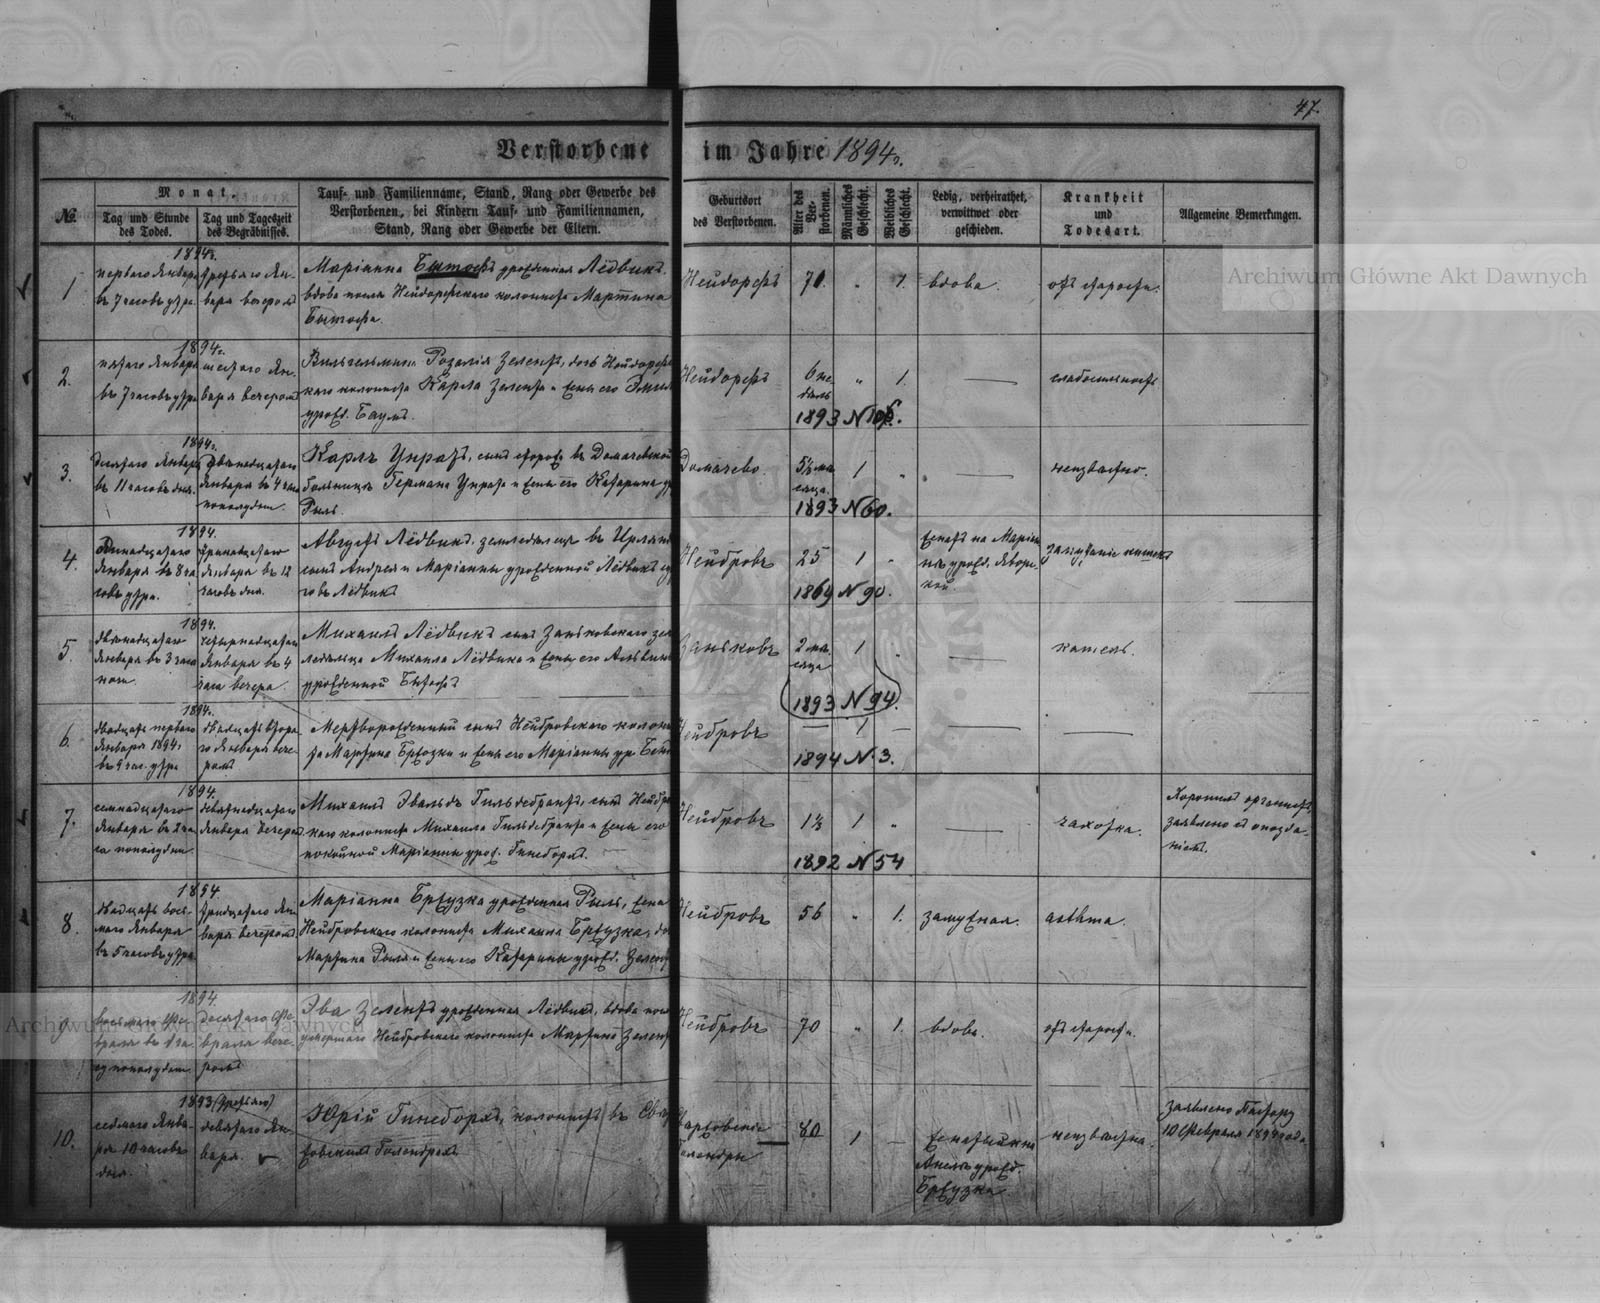 47.
Verstorbene im Jahre 1894 г.
№.
Monat.
Tag und Stunde des Todes.
Tag und Tageszeit des Begräbnisses.
Tauf- und Familienname, Stand, Rang oder Gewerbe des
Verstorbenen, bei Kindern Tauf- und Familiennamen,
Stand, Rang oder Gewerbe der Eltern.
Geburtsort
des Verstorbenen.
Alter des Ver-
storbenen.
Männliches
Geschlecht.
Weibliches
Geschlecht.
Ledig, verheirathet,
verwittwet oder
geschieden.
Krankheit
und
Todesart.
Allgemeine Bemerkungen.
1894г.
1
перваго Января
въ 7 часовъ утра
Третьяго Ян-
варя вечеромъ
Маріанна Бытофъ урожденная Лёдвихъ,
вдова посля Нейдорфскаго колониста Мартина
Бытофа.
Нейдорфъ 70. " 1. вдова. отъ старости.
1894г.
2.
пятаго Января
въ 7 часовъ утра
шестаго Ян-
варя вечеромъ
Вильгельмина Розалія Зелентъ, дочь Нейдорфс
каго колониста Карла Зелента и жены его
урожд. Баумъ.
Нейдорфъ 6 не-
дѣль " 1.
1893 N
1894г.
3.
десятаго Января
въ 11 часовъ дня.
Двѣнадцатаго
Января въ 4 часа
пополудни.
Карлъ Унратъ, сынъ сторож въ Домачевской
больницѣ Германа Унрата и жены его Катарины ур
Рыль.
Домачево. мѣ-
сяца. 1 " неизвѣстно.
1893 N 60.
1894.
4.
Одинадцатаго
Января въ 8 ча
совъ утра.
Тринадцатаго
Января въ 12
часовъ дня.
Августъ Лёдвихъ, земледѣлецъ въ
сынъ Андрея и Маріанны урожденной Лёдвихъ су
говъ Лёдвихъ
Нейбровъ 25 1 "
Женатъ на Маріан
нѣ урожд. Явор-
кой.
1869 N 90.
1894.
5.
двѣнадцатаго
Января въ 3 часа
ночи.
Четырнадцатаго
Января въ 4
часа вечера.
Михаилъ Лёдвихъ сынъ Заньковскаго зем
ледѣльца Михаила Лёдвиха и жены его
урожденной Бытофъ
Заньковъ 2 мѣ-
сяца 1 " кашель.
1893 N 94.
1894г.
6.
двадцать перваго
Января 1894г.
въ 9 час. утра
двадцать втора
го Января вече-
ромъ
Мертворожденный сынъ Нейбровскаго колони
ста Мартина Брѣузки и жены его Маріанны ур
Нейбровъ 1 —
1894 N. 3.
1894.
7.
семнадцатаго
Января въ 2 ча
са пополудни.
девятнадцатаго
Января вечеромъ.
Михаилъ Эвальдъ Гильдебрантъ, сынъ Нейбров
скаго колониста Михаила Гильдебранта и жены его
покойной Маріанны урожд. Гинеборхъ.
Нейбровъ 1½ 1 " чахотка.
1892 N 54
Хоронилъ органистъ,
заявлено съ опозда-
ніемъ.
1894.
8.
двадцать вось-
маго Января
въ 5 часовъ утра
тридцатаго Ян-
варя вечеромъ.
Маріанна Брѣузка урожденная Рыль, жена
Нейбровскаго колониста Михаила Брѣузка, до
Мартина Рыля и жены его Катарины урожд. Зелент
Нейбровъ 56 " 1. замужняя. asthma.
1894.
9
восьмаго Фев-
раля въ 1 ча-
су пополудни
Десятаго Фе
враля вече-
ромъ
Эва Зелентъ урожденная Лёдвихъ, вдова посл
умершаго Нейбровскаго колониста Мартина Зелент
Нейбровъ 70 " 1. вдова. отъ старости.
1893 (третьяго)
10.
седмаго Янва-
ря 10 часовъ
дня.
девятаго Ян-
варя.
Юрій Гинеборхъ, колонистъ въ Сва
жовскихъ Голендрахъ
Голендры 80 1 —
Женатый на
Аннѣ урожд.
Брѣузка.
неизвѣстна.
Заявлено Пастору
10 Февраля 1894 года.
Archiwum Główne Akt Dawnych
Archiwum Główne Akt Dawnych